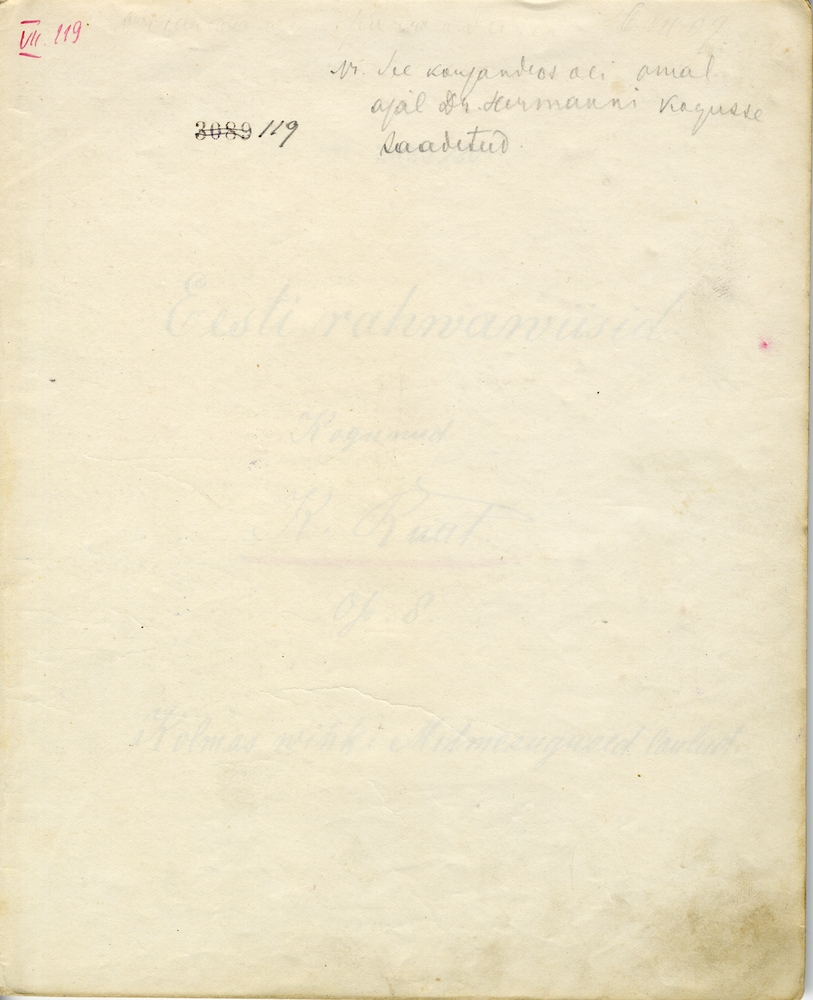 VII. 119
Nr. See korjandus oli omal
ajal Dr. Hermanni kogusse
saadetud.
3089 119
Eesti rahwawiisid
Kogunud
K. Ruut
Op. 8.
Kolmas wihk: Mitmesugused laulud.